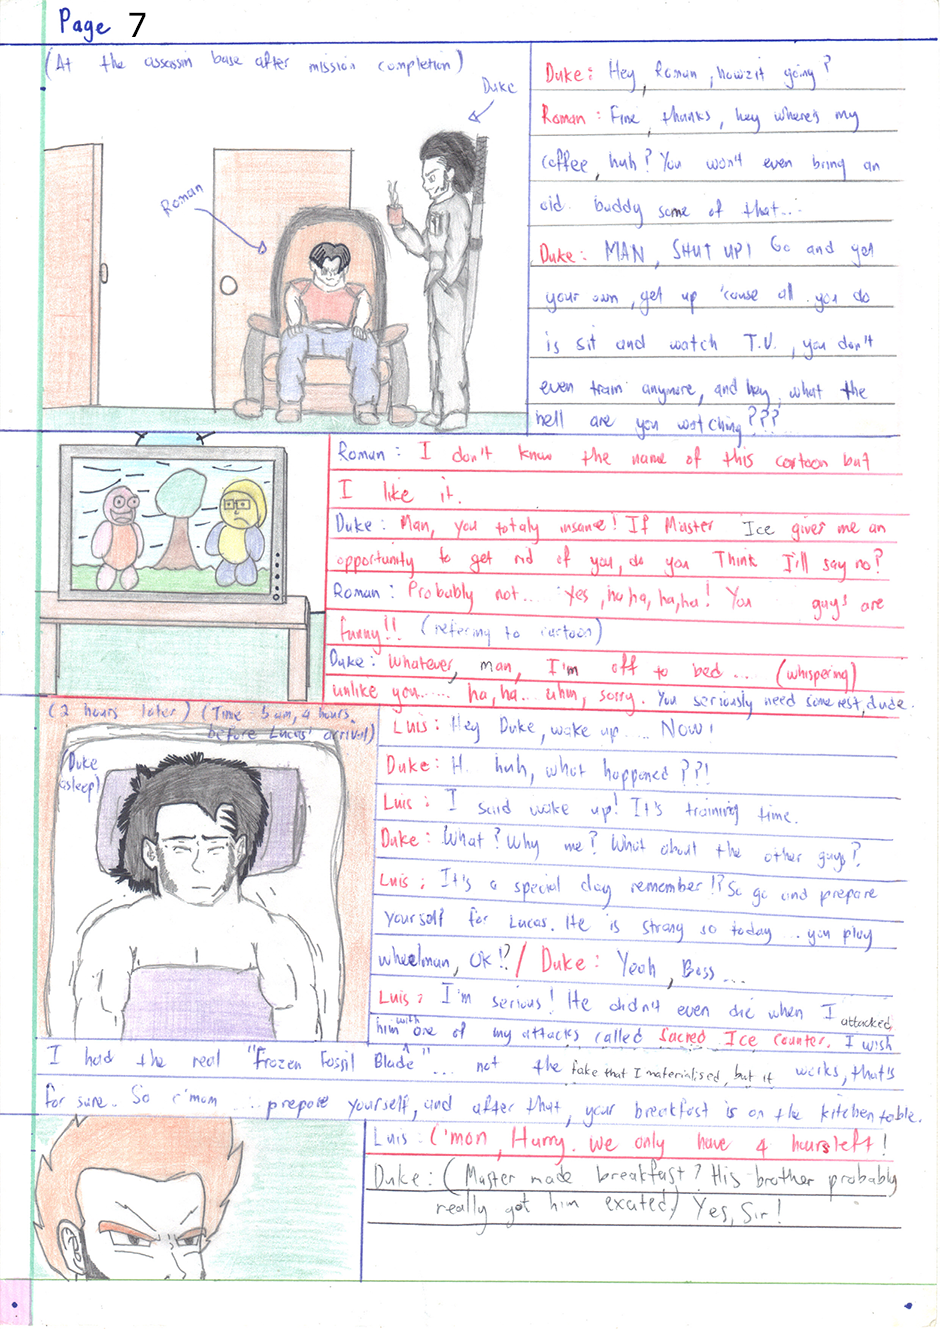 Page 7
(At the assassin base after mission completion)
Duke
Roman
Duke: Hey, Roman, howzit going?
Roman: Fine, thanks, hey where's my
coffee, huh? You won't even bring an
old buddy some of that...
Duke: MAN, SHUT UP! Go and get
your own, get up 'cause all you do
is sit and watch T.V., you don't
even train anymore, and hey, what the
hell are you watching???
Roman: I don't know the name of this cartoon but
I like it.
Duke: Man, you totaly insane! If Master Ice gives me an
opportunity to get rid of you, do you Think I'll say no?
Roman: Probably not... Yes, ha ha, ha, ha! You guys are
funny!! (refering to cartoon)
Duke: Whatever, man, I'm off to bed... (whispering)
unlike you...... ha, ha.. uhm, sorry. You seriously need some rest, dude.
(2 hours later) (Time 5 am, 4 hours
before Lucas' arrival)
(Duke
asleep)
Luis: Hey Duke, wake up.... NOW!
Duke: H. huh, what happened??!
Luis: I said wake up! It's training time.
Duke: What? Why me? What about the other guys?
Luis: It's a special day remember!? So go and prepare
yourself for Lucas. He is strong so today.. you play
wheelman, OK!? / Duke: Yeah, Boss...
Luis: I'm serious! He didn't even die when I attacked
him with one of my attacks called Sacred Ice counter. I wish
I had the real "Frozen Fossil Blade"... not the fake that I materialised, but it works, that's
for sure.. So c'mon .... prepare yourself, and after that, your breakfast is on the kitchen table.
Luis: C'mon, Hurry. we only have 4 hours left!
Duke: (Master made breakfast? His brother probably
really got him excated) Yes, Sir!